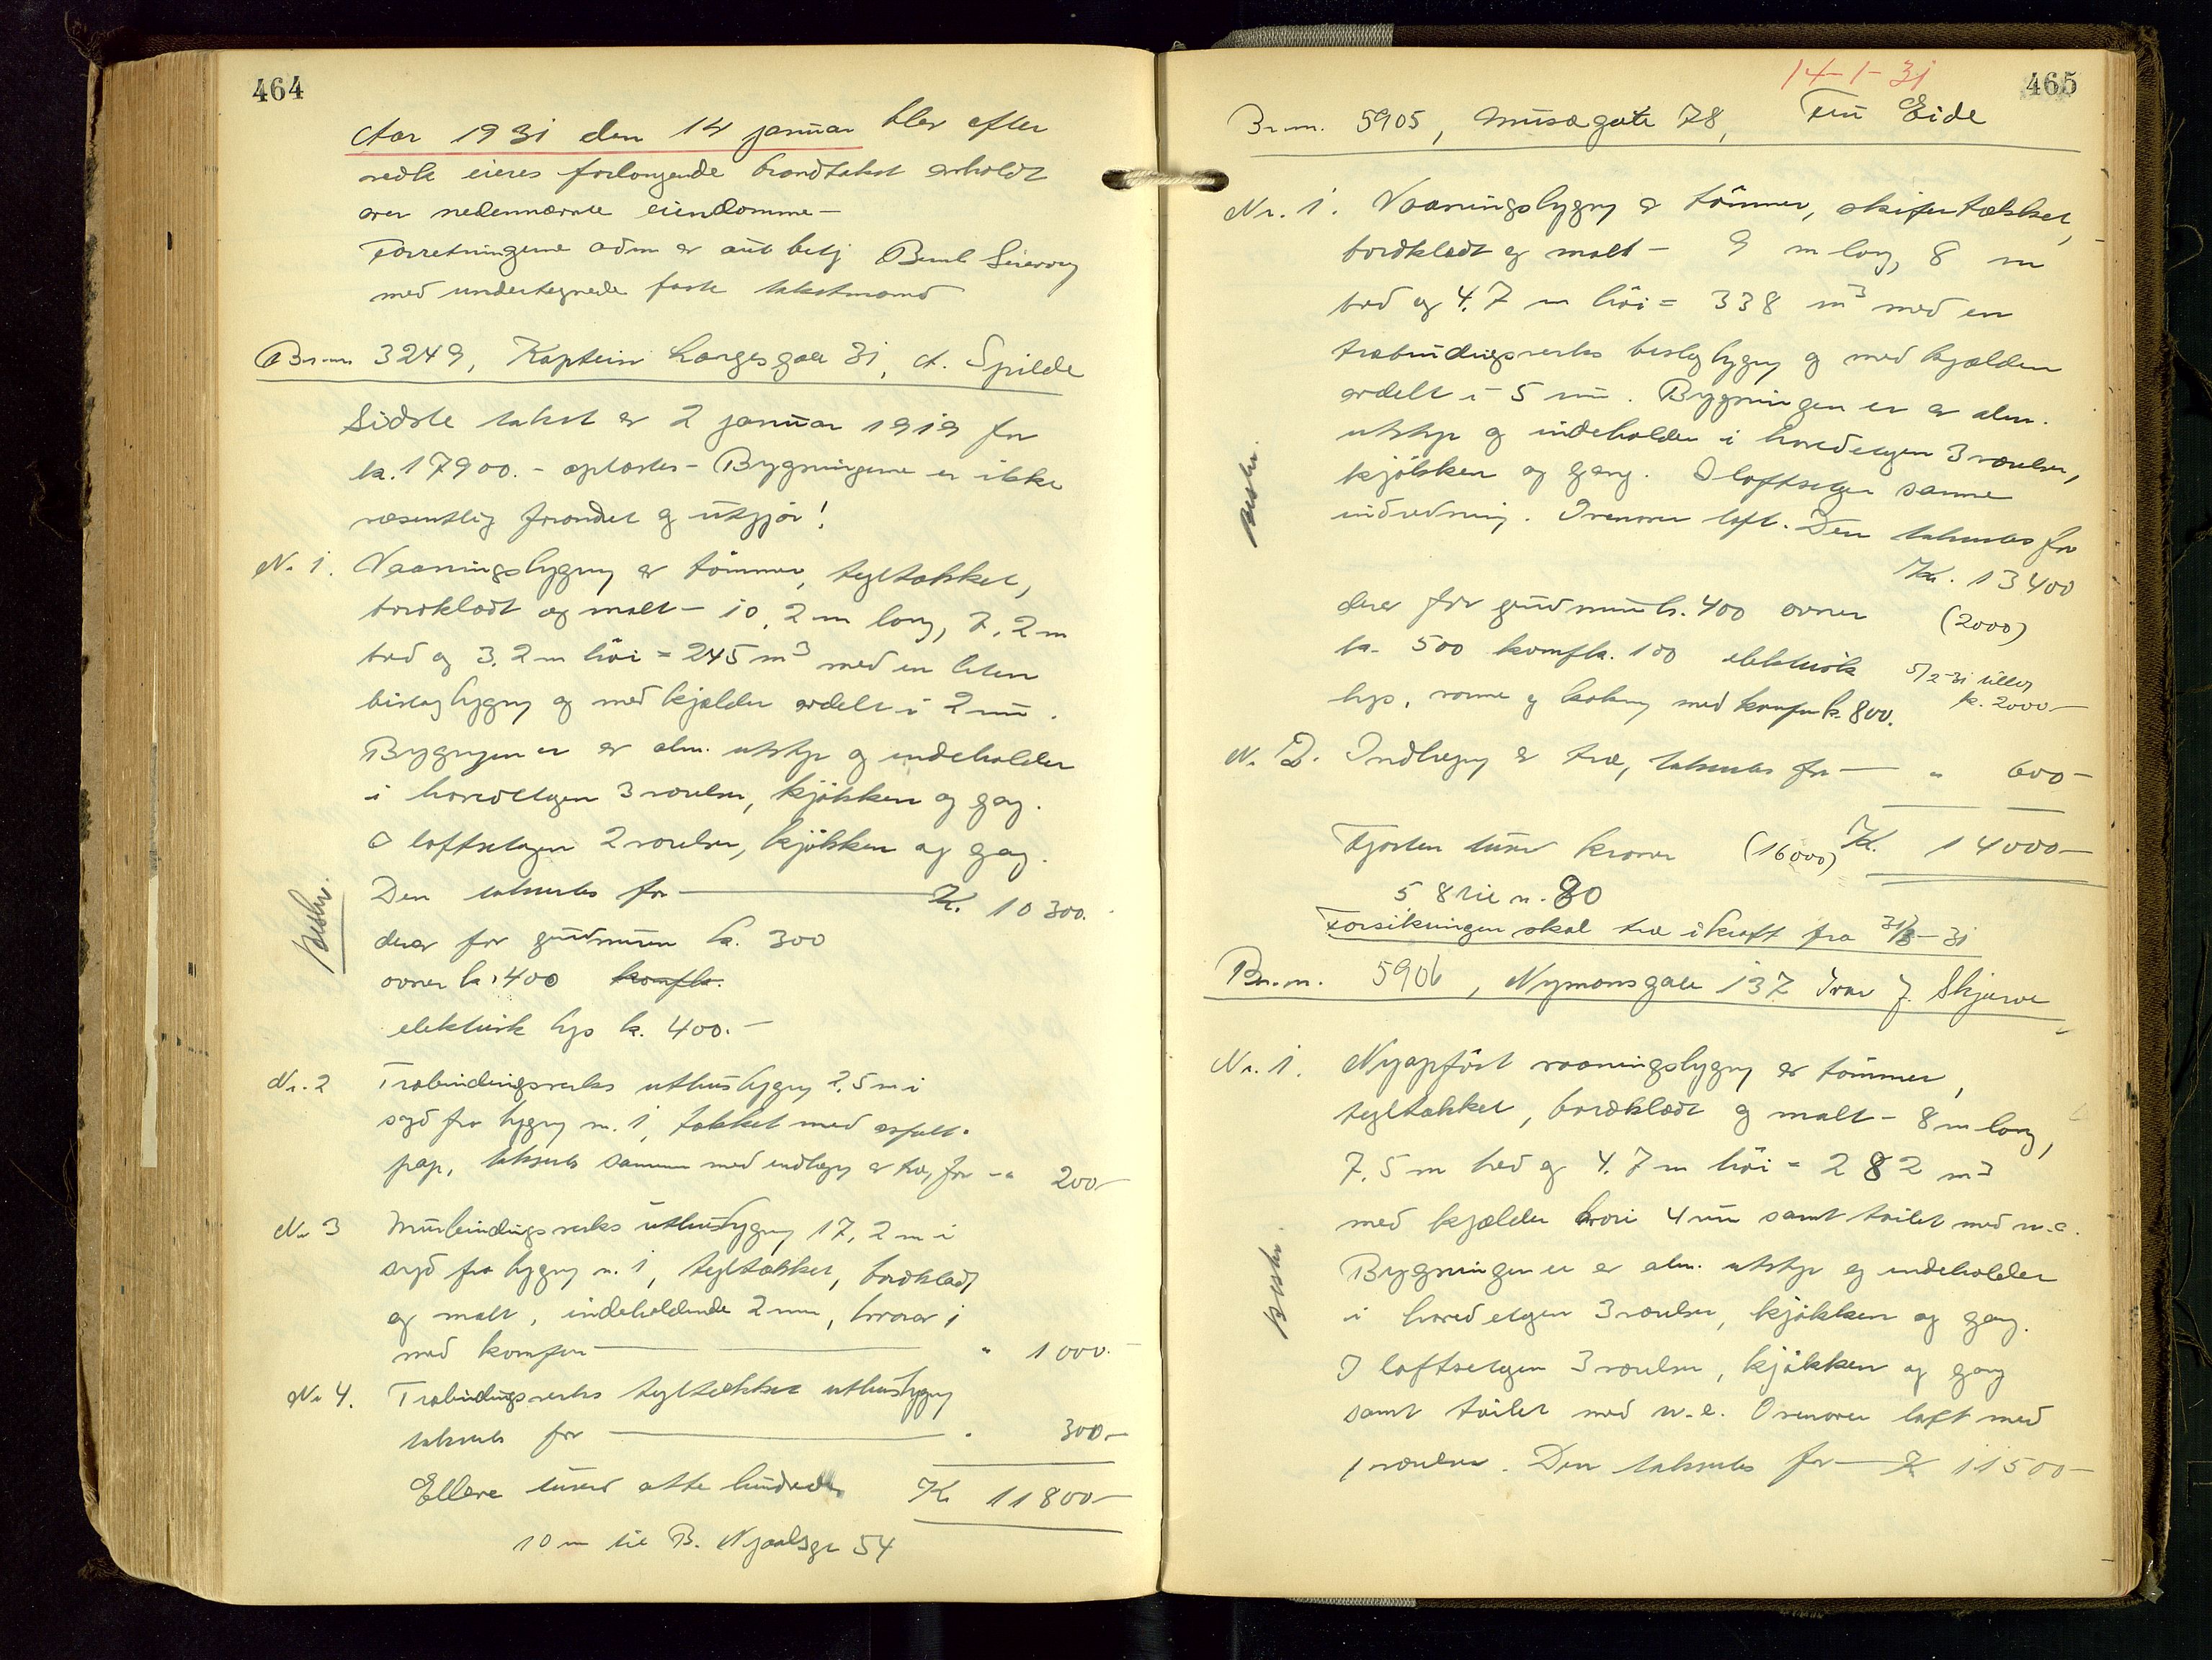 464
Aar 1931 den 14 januar blev efter
nedst. eieres forlangende brandtakst avholdt
over nedennævnte eiendomme –
Forretningerne adm av aut betj
med undertegnede faste takstmænd
Br.nr. 3249, Kaptein Langesgate 31, A. Spilde
Sidste takst er 2 januar 1919 for
kr. 17900.- oplæstes – Bygningerne er ikke
væsentlig forandret og utgjør!
Nr. 1. Vaaningsbygng av tømmer, tegltækket,
bordklædt og malt – 10,2 m lang, 7,2 m
bred og 3.2 m høi = 245 m³ med en liten
bislagbygng og med kjelder avdelt i 2 rum.
Bygngen er av alm. utstyr og indeholder
i hovedetagen 3 værelser, kjøkken og gang.
I loftsetagen 2 værelser, kjøkken og gang.
Den takseres for Kr. 10300.
derav for grundmuren kr. 300
ovner kr. 400 komfkr.
elektrisk lys kr. 400.-
Beskr.
Nr. 2 Træbindingsverks uthusbygng 2,5 m i
syd fra bygng nr. 1, tækket med asfalt-
pap, takseres sammen med indhegng av træ, for – " 200-
Nr. 3 Murbindingsverks uthusbygng 17,2 m i
syd fra bygng nr. 1, tegltækket, bordklædt
og malt, indeholdende 2 rum, hvorav 1
med komfur " 1000.-
Nr. 4. Træbindingsverks tegltækket uthusbygng
takseres for " 300-
Elleve tusend atte hundrede Kr 11800-
10 m til B. Njaalsgt 54
14-1-31
465
Br.nr. 5905, Musægate 78, Fru Eide
Nr. 1. Vaaningsbygng av tømmer, skifertækket,
bordklædt og malt – 9 m lang, 8 m
bred og 4.7 m høi = 338 m³ med en
træbindingsverks bislagbygng og med kjælder
avdelt i 5 rum. Bygningen er av alm.
utstyr og indeholder i hovedetagen 3 værelser,
kjøkken og gang. I loftsetagen samme
indredning. Ovenover loft. Den takseres for
Kr. 13400
derav for grundmur kr. 400 ovner (2000)
kr. 500 komfkr. 100 elektrisk 5/2-31 tillæg
lys, varme og kokng med komfur kr. 800. kr. 2000-
Beskr.
Nr. 2. Indhegng av træ, takseres for – " 600-
Fjorten tusend kroner (16000) Kr. 14000-
5 8 til nr. 80
Forsikringen skal træ i kraft fra 31/3-31
Br.nr. 5906, Nymansgate 137 Ivar J. Skjerve
Nr. 1. Nyopført vaaningsbygng av tømmer,
tegltækket, bordklædt og malt – 8 m lang,
7.5 m bred og 4.7 m høi = 282 m³
med kjælder hvori 4 rum samt toilet med w.c.
Bygningen er av alm. utstyr og indeholder
i hovedetagen 3 værelser, kjøkken og gang.
I loftsetagen 3 værelser, kjøkken og gang
samt toilet med w.c. Ovenover loft med
1 værelse. Den takseres for – Kr 11500-
Beskr.